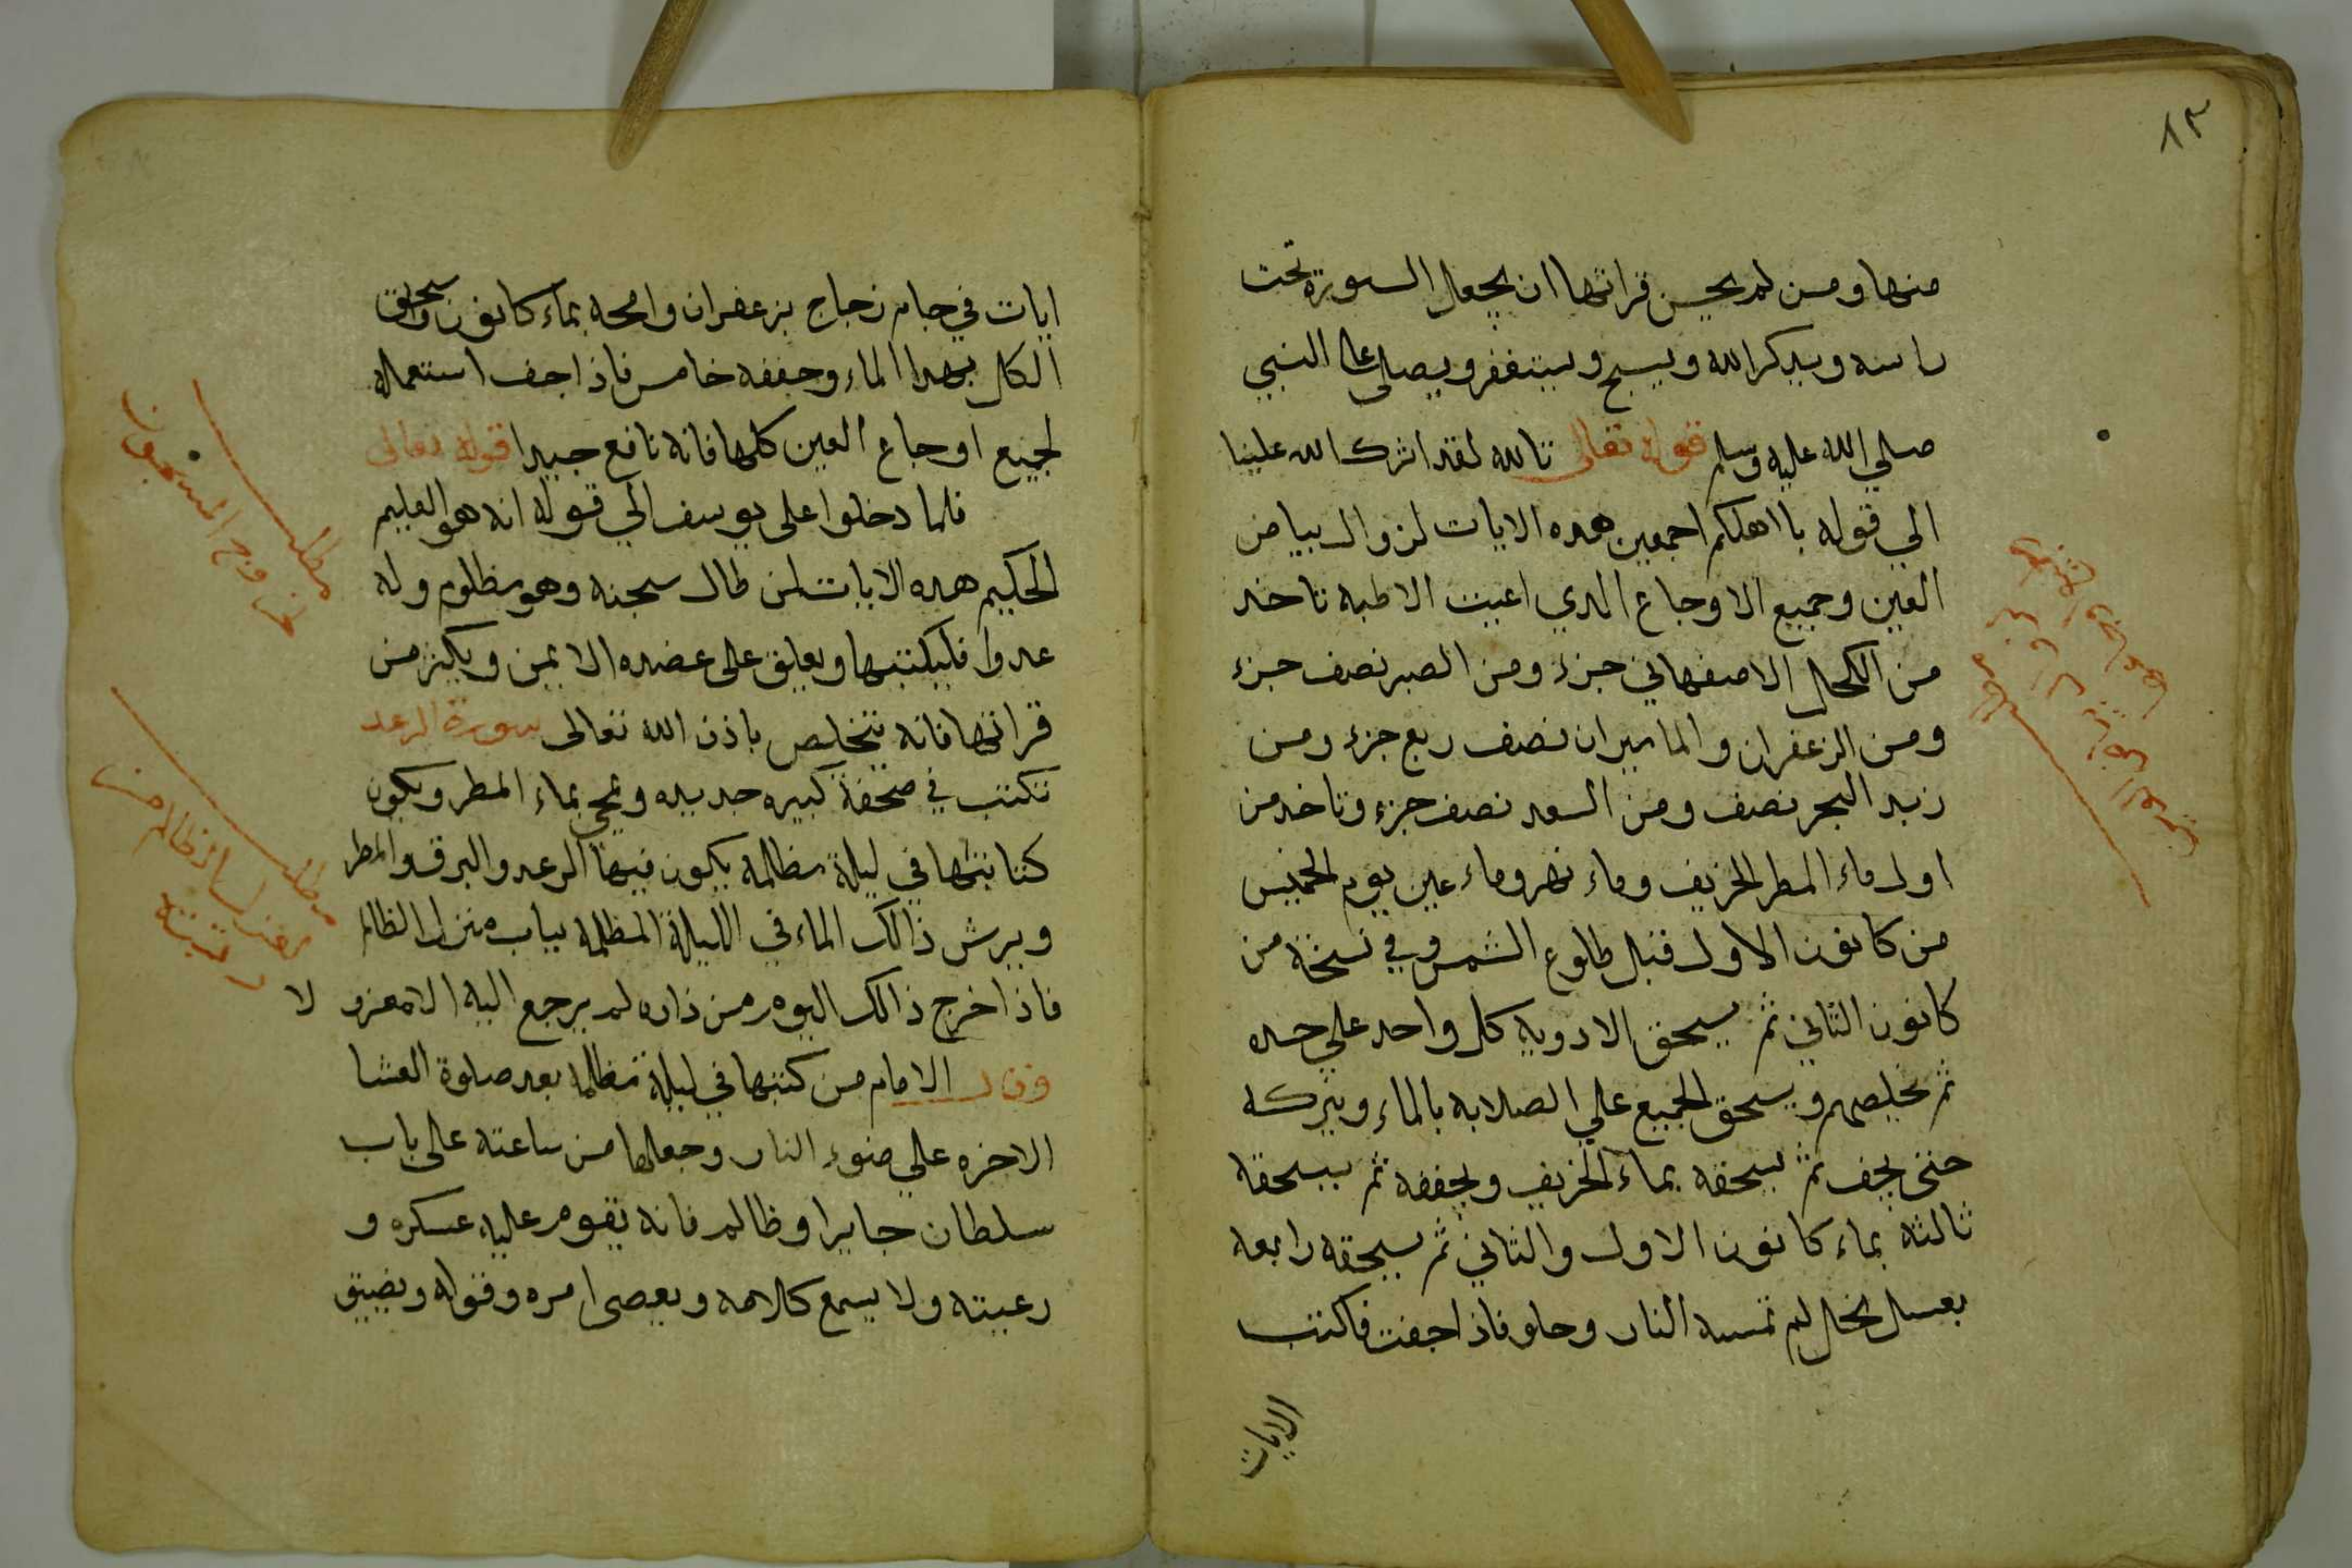 ١٣
منها ومن لم يحسن قراتها ان يجعل السورة تحت
راسه ويدكر الله ويسبح ويستغفر ويصلي على النبي
صلي الله عليه وسلم قوله تعالى تالله لقد اثرك الله علينا
الي قوله باهلكم اجمعين هده الايات لزوال بياض
العين وجميع الاوجاع الدي اعيت الاطبه تاخد
من الكحل الاصفهاني جزء ومن الصبر نصف جزء
ومن الزعفران والماميران نصف ربع جزء ومن
زبد البحر نصف ومن السعد نصف جزء وتاخد من
اول ماء المطر الخريف وماء نهر وماء عين يوم الخميس
من كانون الاول قبل طلوع الشمس وفي نسخة من
كانون الثاني ثم يسحق الادويه كل واحد علي حده
ثم يخلصهم ويسحق الجميع علي الصلابه بالماء ويتركه
حتى يجف ثم يسحقه بماء الخريف ويجففه ثم يسحقه
ثالثه بماء كانون الاول والثاني ثم يسحقه رابعه
بعسل نحل لم تمسه النار وحلو فاذا جفت فاكتب
الايات
ايات في جام زجاج بزعفران وامحه بماء كانون وسحق
الكل بهدا الماء وجففه خامس فاذا جف استعمله
لجميع اوجاع العين كلها فانه نافع جيدا قوله تعالى
فلما دخلوا على يوسف الي قوله انه هو العليم
الحكيم هده الايات لمن طال سجنه وهو مظلوم وله
عدوا فليكتبها ويعلق على عضده الايمن ويكثر من
قراتها فانه يتخلص باذن الله تعالى سورة الرعد
تكتب في صحفة كبيره جديده وتمحي بماء المطر ويكون
كتابتها في ليلة مظلمه يكون فيها الرعد والبرق والمطر
ويرش ذالك الماء في الليلة المظلمه بباب منزل الظالم
فاذا خرج ذالك اليوم من داره لم يرجع اليه الا معزولا
وقال الامام من كتبها في ليلة مظلمه بعد صلوة العشا
الاخره علي ضوء النار وجعلها من ساعته على باب
سلطان جايرا وظالم فانه يقوم عليه عسكره و
رعيته ولا يسمع كلامه ويعصى امره وقوله ويضيق
مطلب
خروج المسجون
مطلب